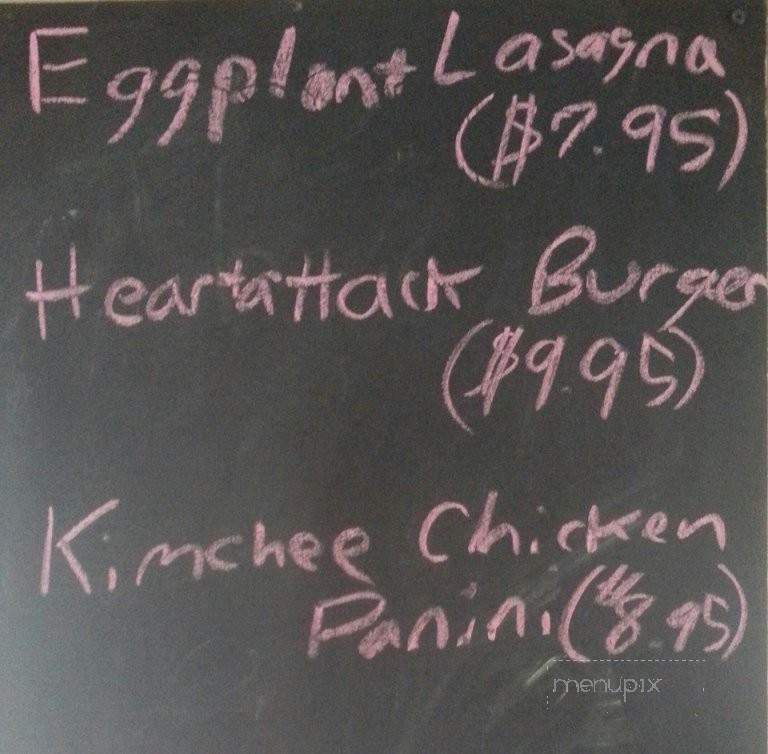 Eggplant Lasagna
($7.95)
Heartattack Burger
($9.95)
Kimchee Chicken
Panini ($8.95)
menupix